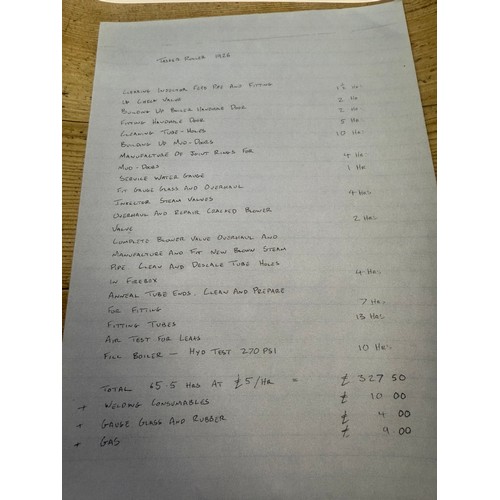 Roller 1926
Cleaning Injector Feed Pipe And Fitting
Up Check Valve 1½ Hrs
Building Up Boiler Handhole Door 2 Hrs
Fitting Handhole Door 2 Hrs
Cleaning Tube-Holes 5 Hrs
Building Up Mud-Doors 10 Hrs
Manufacture Of Joint Rings For
Mud-Doors 4 Hrs
Service Water Gauge 1 Hr
Fit Gauge Glass And Overhaul
Injector Steam Valves 4 Hrs
Overhaul And Repair Cracked Blower
Valve 2 Hrs
Complete Blower Valve Overhaul And
Manufacture And Fit New Blown Steam
Pipe. Clean And Descale Tube Holes
In Firebox 4 Hrs
Anneal Tube Ends. Clean And Prepare
For Fitting 7 Hrs
Fitting Tubes 13 Hrs
Air Test For Leaks
Fill Boiler - Hyd Test 270 PSI 10 Hrs
Total 65.5 Hrs At £5/Hr = £ 327 50
+ Welding Consumables £ 10.00
+ Gauge Glass And Rubber £ 4.00
+ Gas £ 9.00